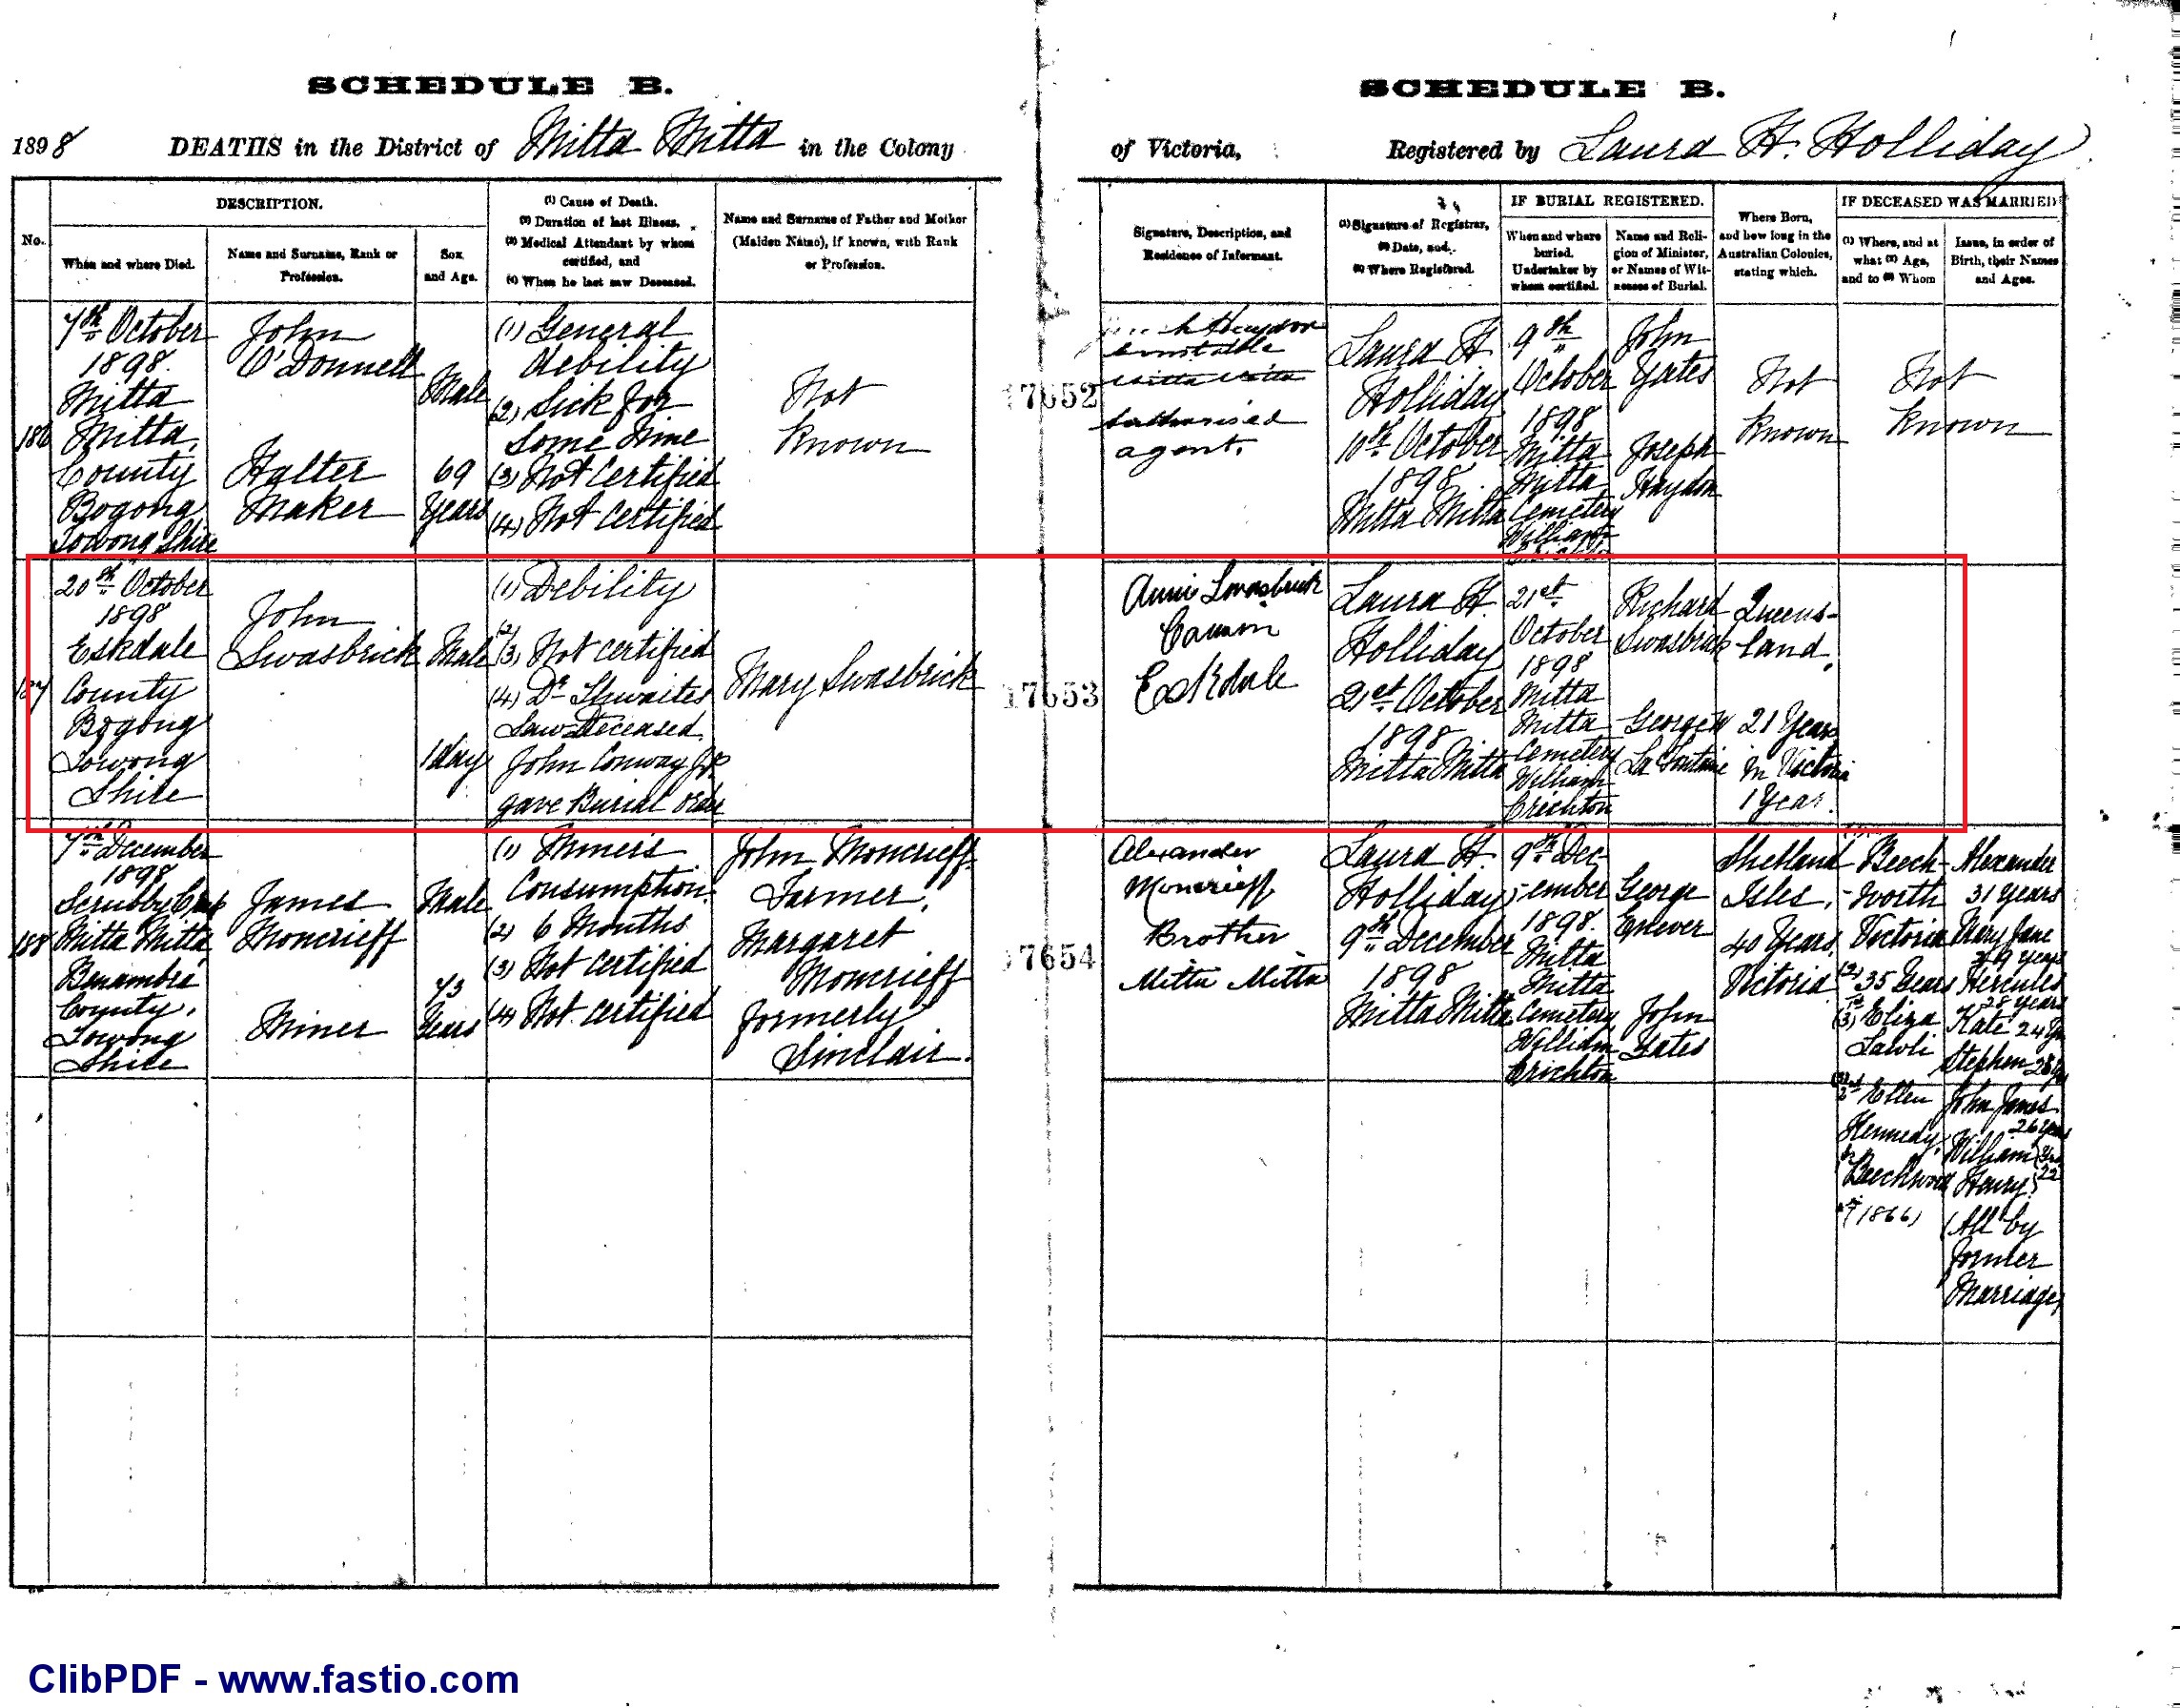 SCHEDULE B.
1898 DEATHS in the District of Mitta Mitta in the Colony
No.
DESCRIPTION.
When and where Died.
Name and Surname, Rank or
Profession.
Sex
and Age.
(1) Cause of Death.
(2) Duration of last Illness,
(3) Medical Attendant by whom
certified, and
(4) When he last saw Deceased.
Name and Surname of Father and Mother
(Maiden Name), if known, with Rank
or Profession.
186
7th October
1898.
Mitta
Mitta,
County
Bogong
Towong Shire
John
O'Donnell
Halter
Maker
Male
69
Years
(1) General
Debility
(2) Sick for
Some Time
(3) Not Certified
(4) Not Certified
Not
Known
187
20th October
1898
Eskdale
County
Bogong
Towong
Shire
John
Swasbrick
Male
1 day
(1) Debility
(2)
(3) Not certified
(4) Dr Thwaites
Saw Deceased.
John Conway J.P.
gave Burial order
Mary Swasbrick
188
7th December
1898
Scrubby Creek
Mitta Mitta
Benambra
County,
Towong
Shire
James
Moncrieff
Miner
Male
73
Years
(1) Miners
Consumption.
(2) 6 Months
(3) Not certified
(4) Not certified
John Moncrieff
Farmer,
Margaret
Moncrieff
formerly
Sinclair.
SCHEDULE B.
of Victoria, Registered by Laura H. Holliday
Signature, Description, and
Residence of Informant.
(1) Signature of Registrar,
(2) Date, and
(3) Where Registered.
IF BURIAL REGISTERED.
When and where
buried.
Undertaker by
whom certified.
Name and Reli-
gion of Minister,
or Names of Wit-
nesses of Burial.
Where Born,
and how long in the
Australian Colonies,
stating which.
IF DECEASED WAS MARRIED
(1) Where, and at
what (2) Age,
and to (3) Whom
Issue, in order of
Birth, their Names
and Ages.
17652
Haydon
Constable
Mitta Mitta
Authorised
agent.
Laura H.
Holliday
10th October
1898
Mitta Mitta
9th
October
1898
Mitta
Mitta
Cemetery
William
John
Yates
Joseph
Haydon
Not
Known
Not
Known
17653
Annie Swasbrick
Eskdale
Laura H.
Holliday
21st October
1898
Mitta Mitta
21st
October
1898
Mitta
Mitta
Cemetery
William
Crichton
Richard
Swasbrick
George W
La Fontaine
Queens-
land,
21 Years
in Victoria
1 Year.
17654
Alexander
Moncrieff
Brother
Mitta Mitta
Laura H.
Holliday
9th December
1898
Mitta Mitta
9th Dec-
ember
1898.
Mitta
Mitta
Cemetery
William
Crichton
George
John
Yates
Shetland
Isles,
40 Years,
Victoria
(1) Beech-
worth
Victoria
(2) 35 Years
(3) Eliza
Ellen
Kennedy,
Beechworth
1866)
Alexander
31 Years
Mary Jane
29 Years
Hercules
28 Years
Kate 24
Stephen 28
John James
26 Years
William
Henry 22
(All by
former
Marriage)
ClibPDF - www.fastio.com